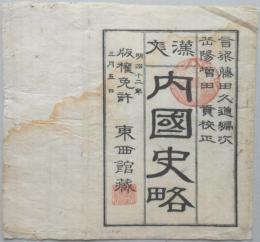 音羽藤田久道編次
岳陽増田貢校正
漢文
内國史略
明治十二年
三月五日
版權免許
東西館藏